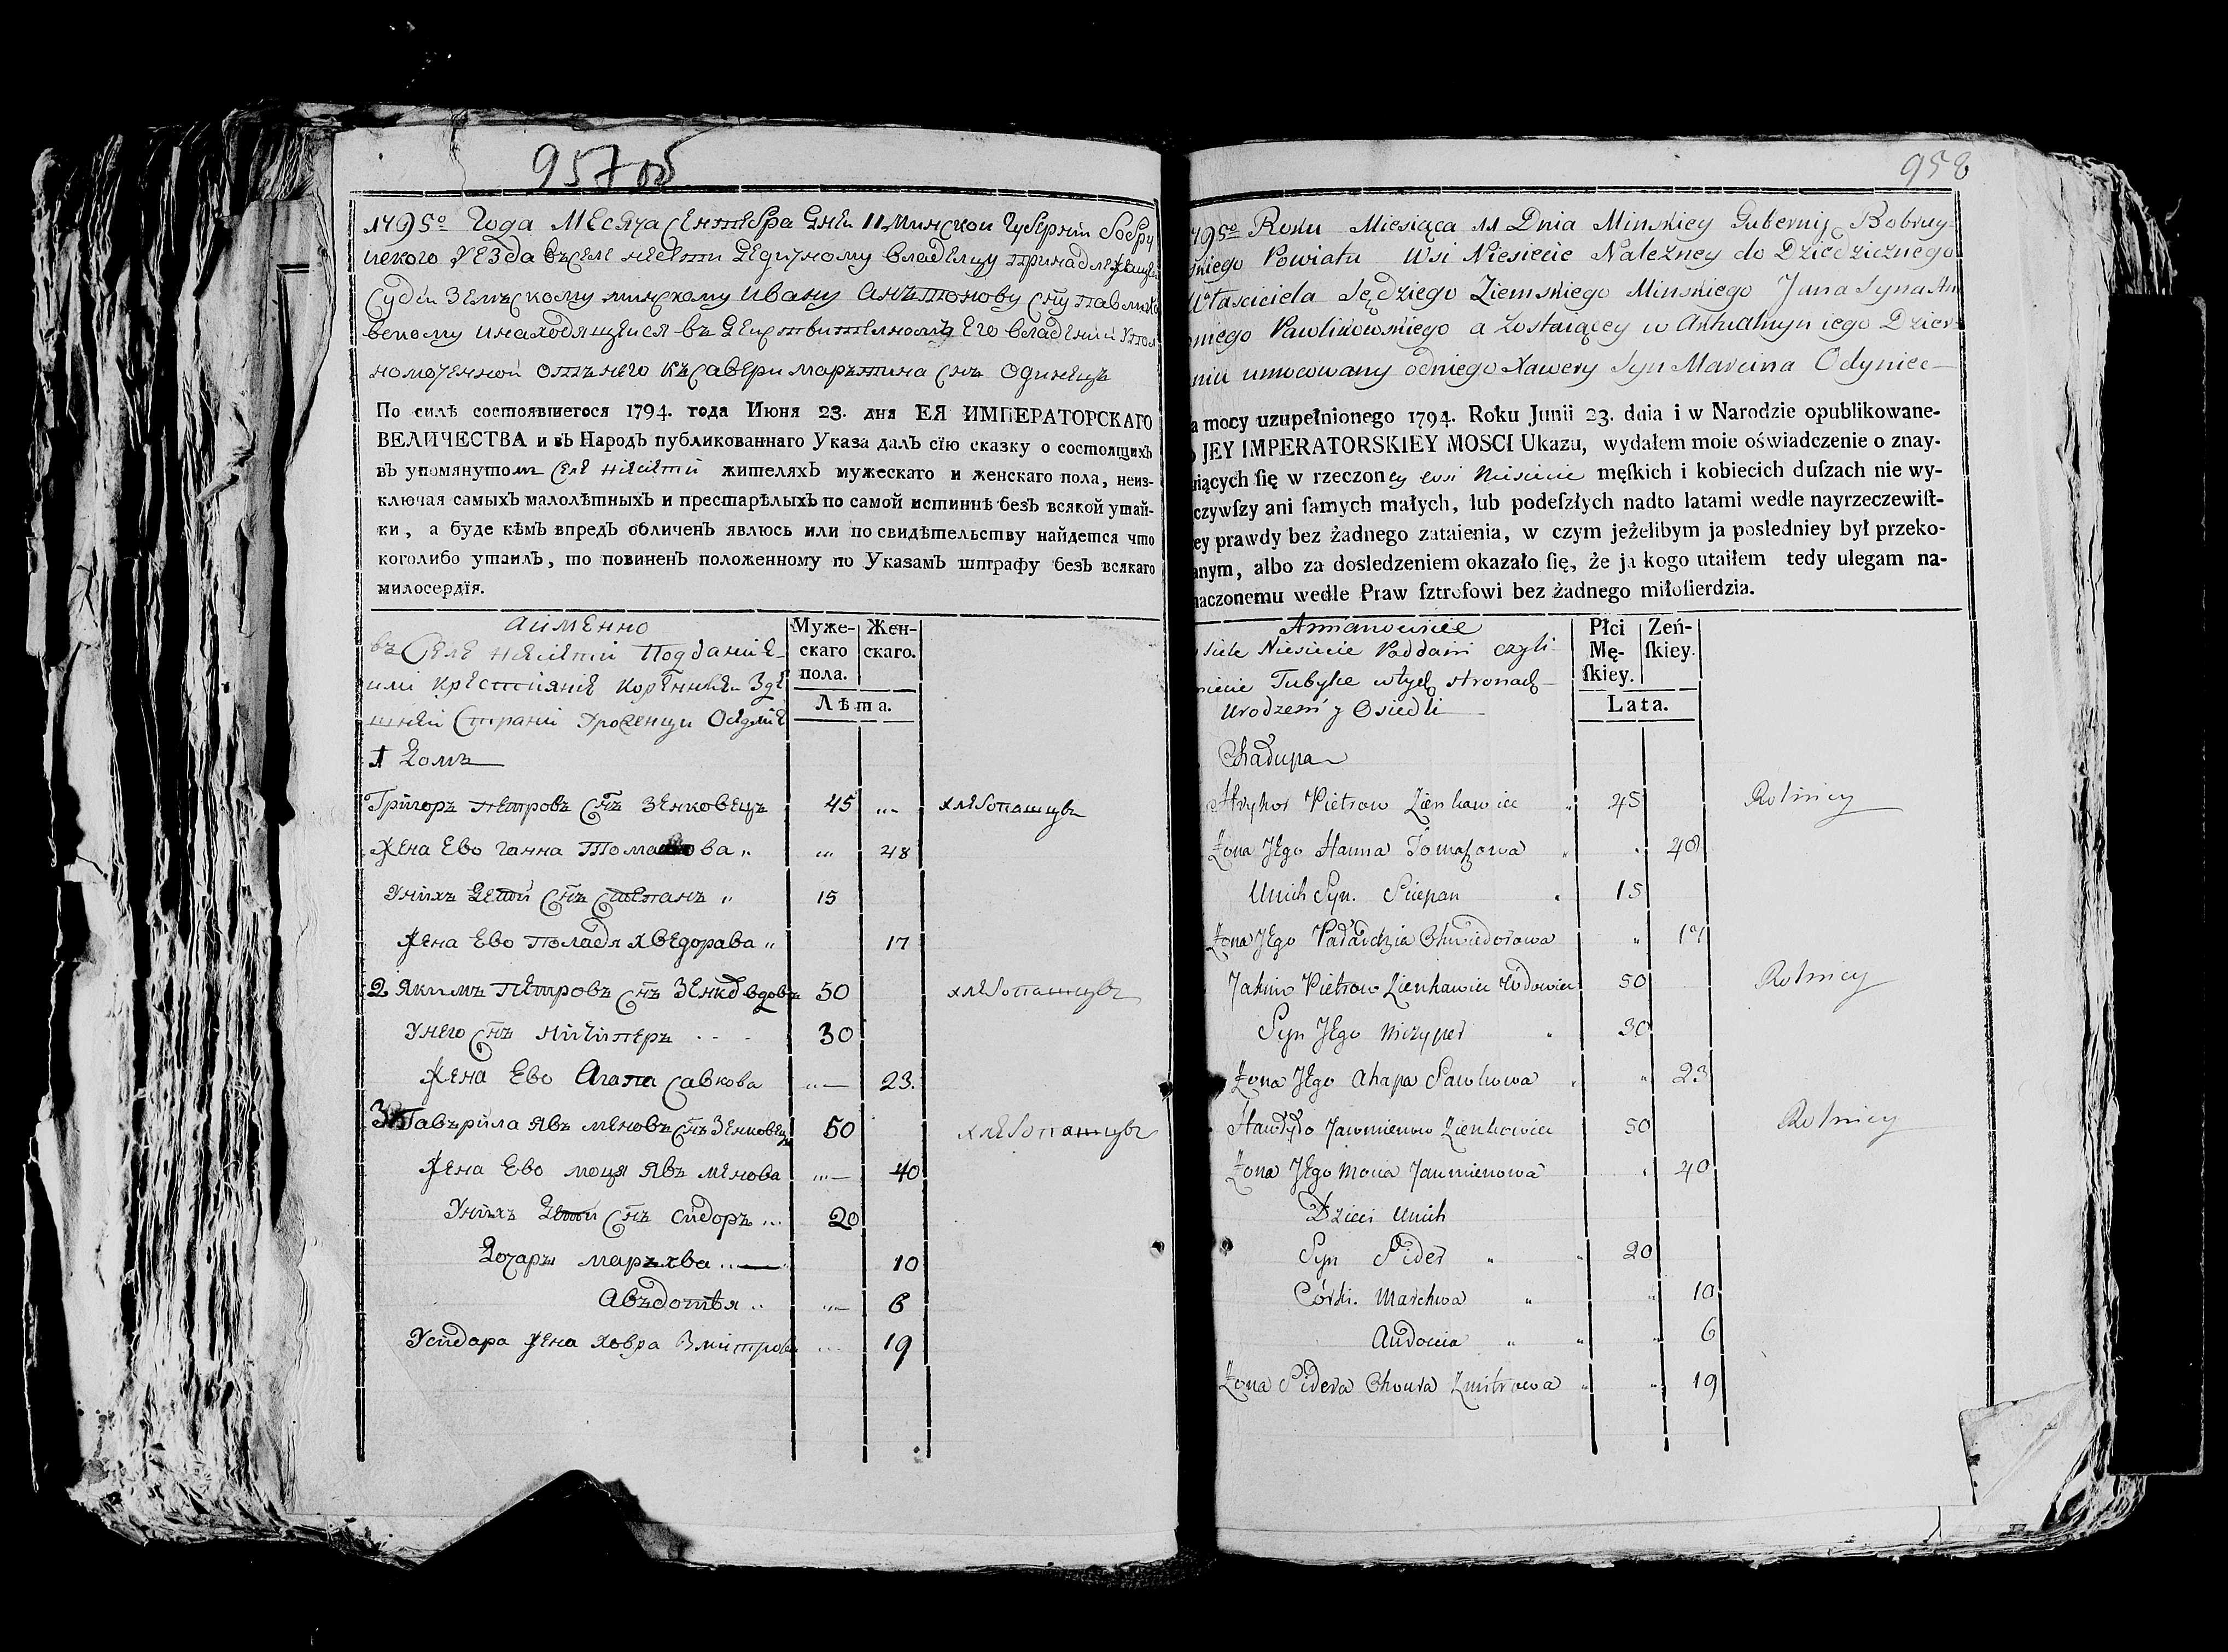 957 об
1795º Года Месяча Сентебра Дней 11 Минской Губернии Бобру
йского Уезда въ селе несети Дедичному владелцу принадлежащей
Судьи Земъскому минскому Ивану Анътонову сну Павлико
вскому инаходящейся въ Действителномъ Его владении упол
номоченной отънего Къ савери марътина снъ Одинецъ
По силѣ состоявшегося 1794. года Июня 23. дня ЕЯ ИМПЕРАТОРСКАГО
ВЕЛИЧЕСТВА и въ Народъ публикованнаго Указа далъ сїю сказку о состоящихъ
въ упомянутом селе несети жителяхъ мужескаго и женскаго пола, неиз-
ключая самыхъ малолѣтныхъ и престарѣлыхъ по самой истиннѣ безъ всякой утай-
ки, а буде кѣмъ впредъ обличенъ явлюсь или по свидѣтельству найдется что
коголибо утаилъ, то повиненъ положенному по Указамъ штрафу безъ всякаго
милосердїя.
аименно
въ Селе несети Поддание
или крестияние кореннией зде
шней страни
Муже-
скаго
пола.
Жен-
скаго.
Лѣта.
1 Домъ
Григоръ петровъ снъ зенковецъ 45 хлебопашцы
Жена Ево ганна Томашова 48
Унихъ Дети снъ степанъ 15
Жена Ево поладя хведорава 17
2 Якимъ петровъ снъ Зенков вдовъ 50 хлебопашцы
Унего снъ ничиперъ 30
Жена Ево Агапа савкова 23.
3 Гавърила Явъменовъ снъ Зенковец 50 хлебопашцы
Жена Ево моця Явъменова 40
Унихъ Дети снъ сидоръ 20
Дочаръ маръхва 10
Авъдотья 6
Усидара жена ховра Змитрова 19
958
1795º Roku Miesiąca 11 Dnia Minskiey Gubernij Bobruy-
skiego Powiatu Wsi Niesiecie Należney do Dziedzicznego
Własciciela Sędziego Ziemskiego Minskiego Jana Syna An
oniego Pawlikowskiego a zostaiącey w Aktualnym iego Dzier-
niu umocowany odniego Xawery Syn Marcina Odyniec
a mocy uzupełnionego 1794. Roku Junii 23. dnia i w Narodzie opublikowane-
o JEY IMPERATORSKIEY MOSCI Ukazu, wydałem moie oświadczenie o znay-
uiących ſię w rzeczoney wsi Niesiecie męſkich i kobiecich duſzach nie wy-
czywſzy ani ſamych małych, lub podeſzłych nadto latami wedle nayrzeczewiſt-
ey prawdy bez żadnego zataienia, w czym jeżelibym ja posledniey był przeko-
anym, albo za dosledzeniem okazało ſię, że ja kogo utaiłem tedy ulegam na-
naczonemu wedle Praw ſztrofowi bez żadnego miłoſierdzia.
Amianowicie
siele Niesiecie Poddani czyli
Tubylce wtych stronach
Urodzeni y Osiedli
Płci
Mę-
ſkiey.
Zeń-
ſkiey.
Lata.
Chadupa
Hryhor Pietrow Zienkawiec 45 Rolnicy
Zona JEgo Hanna Tomaſzowa 48
Unich Syn. Sciepan 15
Zona JEgo Paładzia Chwiedorowa 17
Jakim Pietrow Zienkawiec Wdowiec 50 Rolnicy
Syn JEgo Niczyper 30
Zona JEgo Ahapa Sawkowa 23
Hawryło Jawmienow Zienkowiec 50 Rolnicy
Zona JEgo Mocia Jaumienowa 40
Dzieci Unich
Syn Sider 20
Córki. Marchwa 10
Audocia 6
Zona Sidera Choura Zmitrowa 19